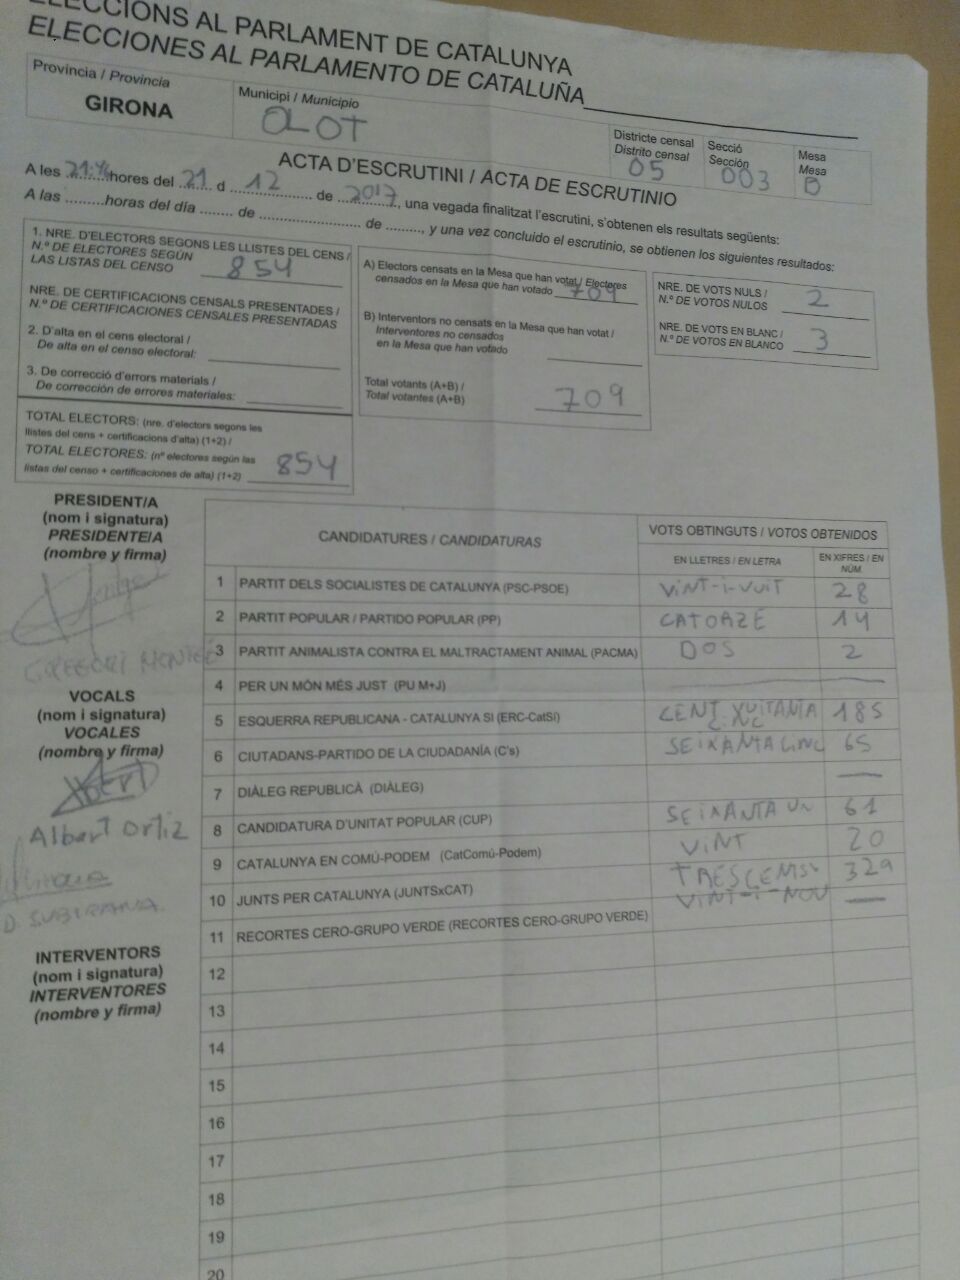 ELECCIONS AL PARLAMENT DE CATALUNYA
ELECCIONES AL PARLAMENTO DE CATALUÑA
Província / Provincia
GIRONA
Municipi / Municipio
OLOT
Districte censal
Distrito censal
05
Secció
Sección
003
Mesa
Mesa
B
ACTA D'ESCRUTINI / ACTA DE ESCRUTINIO
A les 21:46 hores del 21 d 12 de 2017, una vegada finalitzat l'escrutini, s'obtenen els resultats següents:
A las .........horas del día ........ de ........................ de ........, y una vez concluido el escrutinio, se obtienen los siguientes resultados:
1. NRE. D'ELECTORS SEGONS LES LLISTES DEL CENS /
N.º DE ELECTORES SEGÚN
LAS LISTAS DEL CENSO 854
NRE. DE CERTIFICACIONS CENSALS PRESENTADES /
N.º DE CERTIFICACIONES CENSALES PRESENTADAS
2. D'alta en el cens electoral /
De alta en el censo electoral:
3. De correcció d'errors materials /
De corrección de errores materiales:
TOTAL ELECTORS: (nre. d'electors segons les
llistes del cens + certificacions d'alta) (1+2) /
TOTAL ELECTORES: (nº electores según las
listas del censo + certificaciones de alta) (1+2) 854
A) Electors censats en la Mesa que han votat / Electores
censados en la Mesa que han votado 709
B) Interventors no censats en la Mesa que han votat /
Interventores no censados
en la Mesa que han votado
Total votants (A+B) /
Total votantes (A+B) 709
NRE. DE VOTS NULS /
N.º DE VOTOS NULOS 2
NRE. DE VOTS EN BLANC /
N.º DE VOTOS EN BLANCO 3
PRESIDENT/A
(nom i signatura)
PRESIDENTE/A
(nombre y firma)
GREGORI
VOCALS
(nom i signatura)
VOCALES
(nombre y firma)
Albert Ortiz
D. SUBIRANA
INTERVENTORS
(nom i signatura)
INTERVENTORES
(nombre y firma)
CANDIDATURES / CANDIDATURAS
VOTS OBTINGUTS / VOTOS OBTENIDOS
EN LLETRES / EN LETRA
EN XIFRES / EN
NÚM.
1 PARTIT DELS SOCIALISTES DE CATALUNYA (PSC-PSOE) VINT-I-VUIT 28
2 PARTIT POPULAR / PARTIDO POPULAR (PP) CATORZE 14
3 PARTIT ANIMALISTA CONTRA EL MALTRACTAMENT ANIMAL (PACMA) DOS 2
4 PER UN MÓN MÉS JUST (PU M+J)
5 ESQUERRA REPUBLICANA - CATALUNYA SI (ERC-CatSí) CENT VUITANTA CINC 185
6 CIUTADANS-PARTIDO DE LA CIUDADANÍA (C's) SEIXANTA CINC 65
7 DIÀLEG REPUBLICÀ (DIÀLEG)
8 CANDIDATURA D'UNITAT POPULAR (CUP) SEIXANTA UN 61
9 CATALUNYA EN COMÚ-PODEM (CatComú-Podem) VINT 20
10 JUNTS PER CATALUNYA (JUNTSxCAT) TRESCENTS VINT-I-NOU 329
11 RECORTES CERO-GRUPO VERDE (RECORTES CERO-GRUPO VERDE)
12
13
14
15
16
17
18
19
20